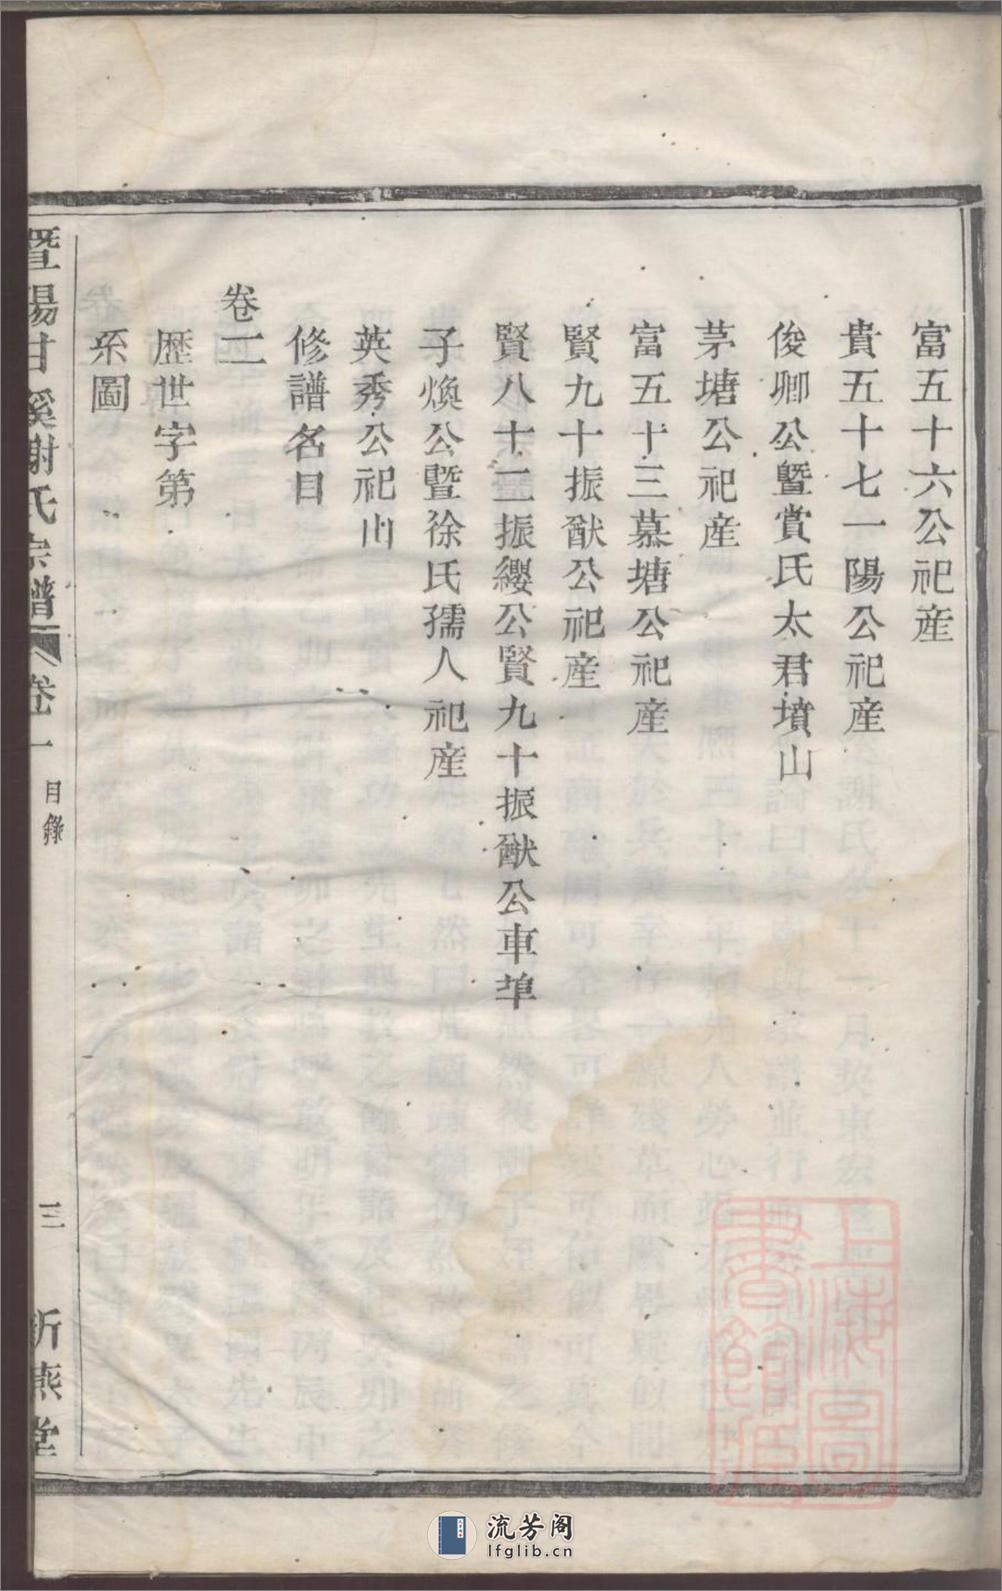 富五十六公祀産
貴五十七一陽公祀産
俊卿公暨賞氏太君墳山
茅塘公祀産
富五十三慕塘公祀産
賢九十振猷公祀産
賢八十二振纓公賢九十振猷公車埠
子煥公暨徐氏孺人祀産
英秀公祀山
修譜名目
卷二
歷世字第
系圖
暨陽甘溪謝氏宗譜 卷一 目錄 三 折燕堂
上海圖書館藏
流芳阁
lfglib.cn